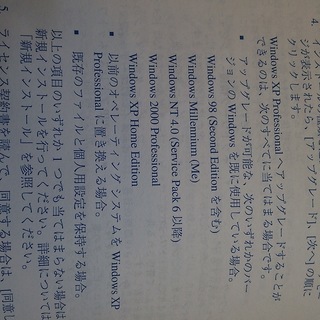 4. インストール
ジが表示されたら、[アップグレード]、[次へ] の順に
クリックします。
Windows XP Professional へアップグレードすることが
できるのは、次のすべてに当てはまる場合です。
■ アップグレードが可能な、次のいずれかのバー
ジョンの Windows を既に使用している場合。
Windows 98 (Second Edition を含む)
Windows Millennium (Me)
Windows NT 4.0 (Service Pack 6 以降)
Windows 2000 Professional
Windows XP Home Edition
■ 以前のオペレーティング システムを Windows XP
Professional に置き換える場合。
■ 既存のファイルと個人用設定を保持する場合。
以上の項目のいずれか 1 つでも当てはまらない場合は
新規インストールを行ってください。詳細については
「新規インストール」を参照してください。
5. ライセンス契約書を読んで、同意する場合は、[同意し